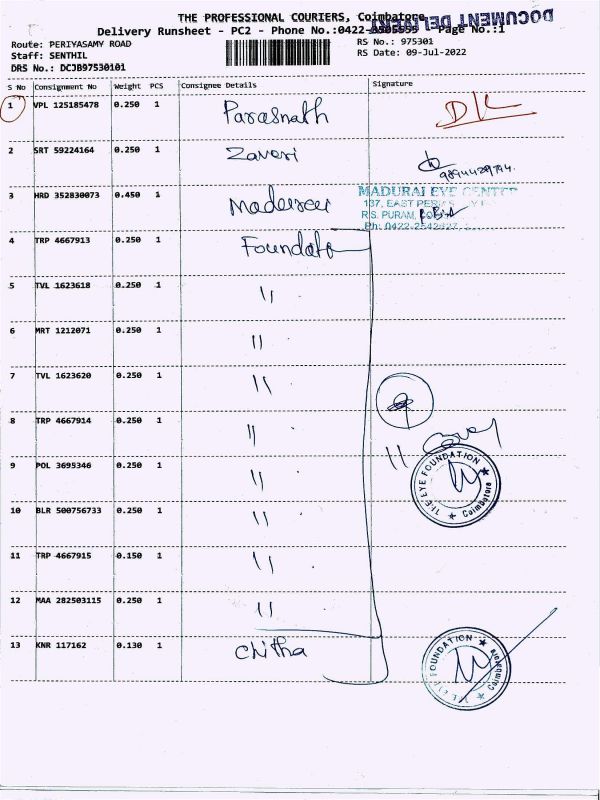 THE PROFESSIONAL COURIERS, Coimbatore
DOCUMENT DELIVERY
Delivery Runsheet - PC2 - Phone No.:0422 Page No.:1
Route: PERIYASAMY ROAD
RS No.: 975301
Staff: SENTHIL
RS Date: 09-Jul-2022
DRS No.: DCJB97530101
S No Consignment No Weight PCS Consignee Details Signature
1 VPL 125185478 0.250 1 Parasnath
2 SRT 59224164 0.250 1 Zaveri
3 HRD 352830073 0.450 1
MADURAI EYE CENTRE
137, EAST
R.S. PURAM,
Ph: 0422
4 TRP 4667913 0.250 1
5 TVL 1623618 0.250 1 "
6 MRT 1212071 0.250 1 "
7 TVL 1623620 0.250 1 "
8 TRP 4667914 0.250 1 "
9 POL 3695346 0.250 1 "
THE EYE FOUNDATION
Coimbatore
10 BLR 500756733 0.250 1 "
11 TRP 4667915 0.150 1 "
12 MAA 282503115 0.250 1 "
13 KNR 117162 0.130 1 Chitha
THE EYE FOUNDATION
Coimbatore